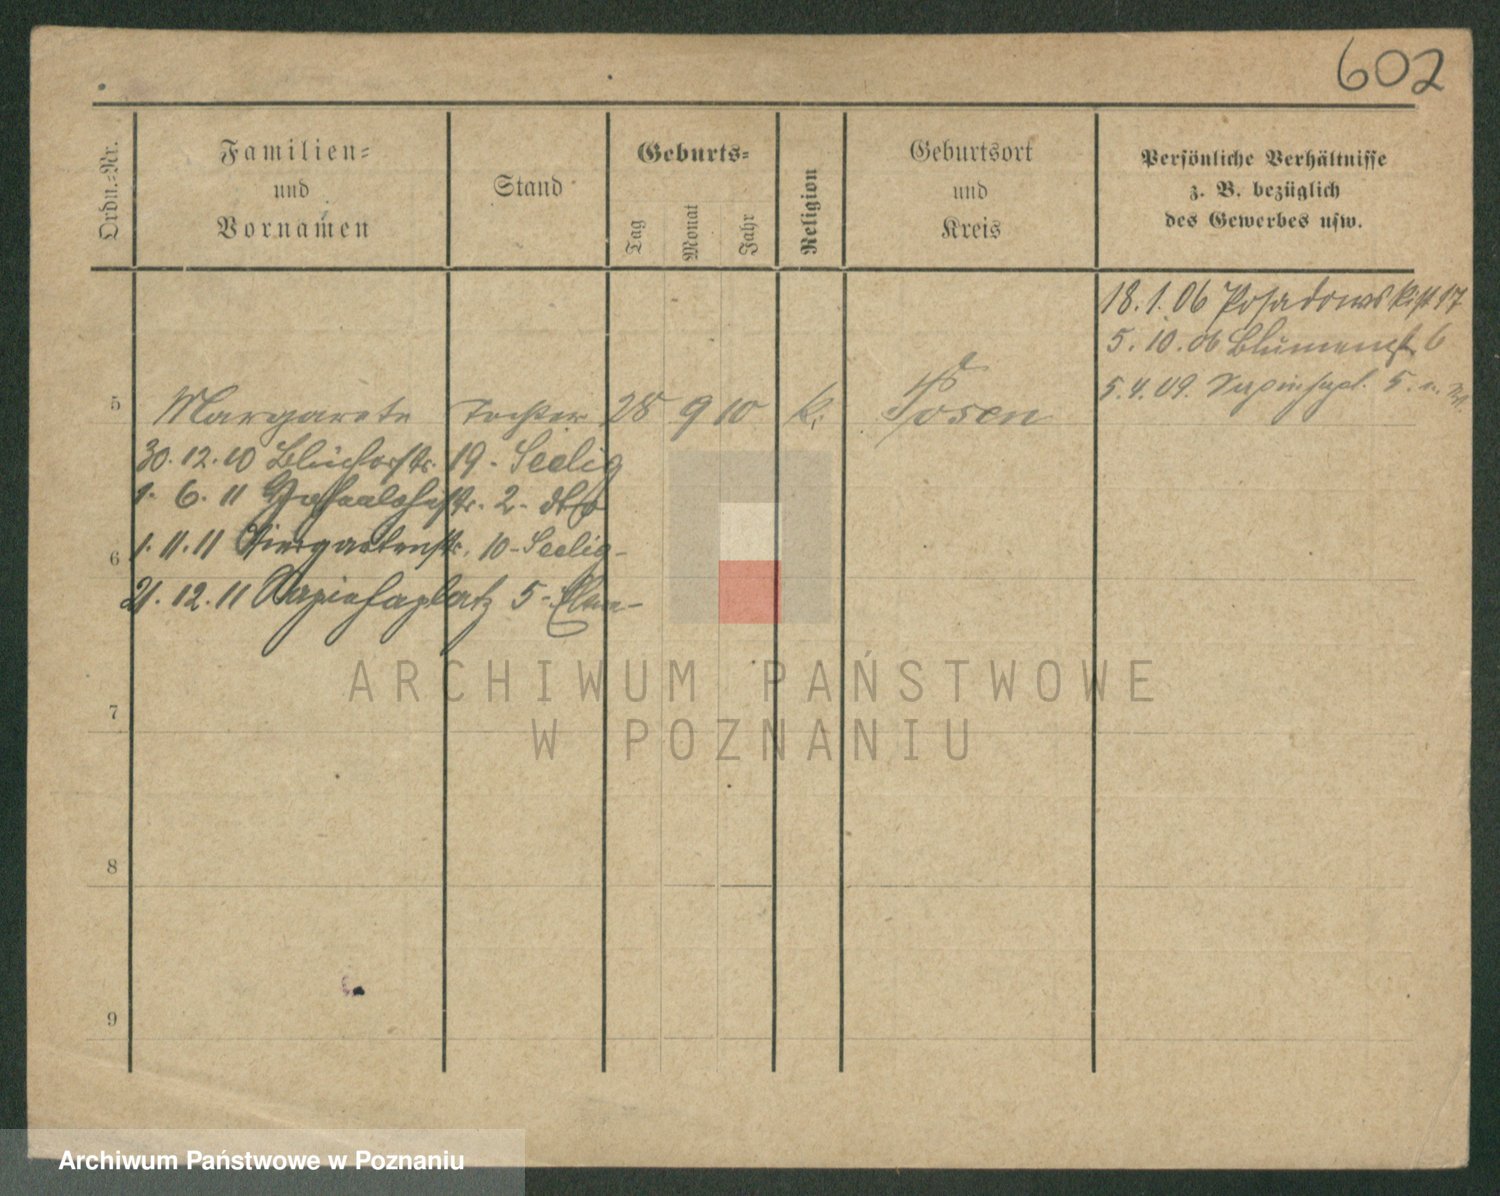 602
Ordn.=Nr.
Familien=
und
Vornamen
Stand
Geburts=
Tag
Monat
Jahr
Religion
Geburtsort
und
Kreis
Persönliche Verhältnisse
z. B. bezüglich
des Gewerbes usw.
18. 1. 06 Posadowskistr 17
5. 10. 06 Blumenstr 6
5. 4. 09. Sapiehapl. 5.
5 Margarete Tochter 28 9 10 k. Posen
30. 12. 10 Blücherstr. 19 - Seelig
1. 6. 11 str. 2 - dto
1. 11. 11 Tiergartenstr. 10 - Seelig -
6
21. 12. 11 Sapiehaplatz 5 -
7
8
9
ARCHIWUM PAŃSTWOWE
W POZNANIU
Archiwum Państwowe w Poznaniu